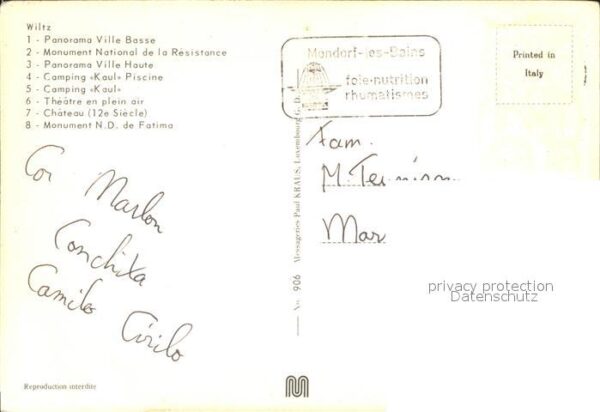 Wiltz
1 - Panorama Ville Basse
2 - Monument National de la Résistance
3 - Panorama Ville Haute
4 - Camping «Kaul» Piscine
5 - Camping «Kaul»
6 - Théâtre en plein air
7 - Château (12e Siècle)
8 - Monument N.D. de Fatima
Cor Marlon
Conchita
Camilo Cirilo
Reproduction interdite
No. 906 Messageries Paul KRAUS, Luxembourg G. D.
Mondorf-les-Bains
foie-nutrition
rhumatismes
Printed in
Italy
Fam.
M.
Mar
privacy protection
Datenschutz